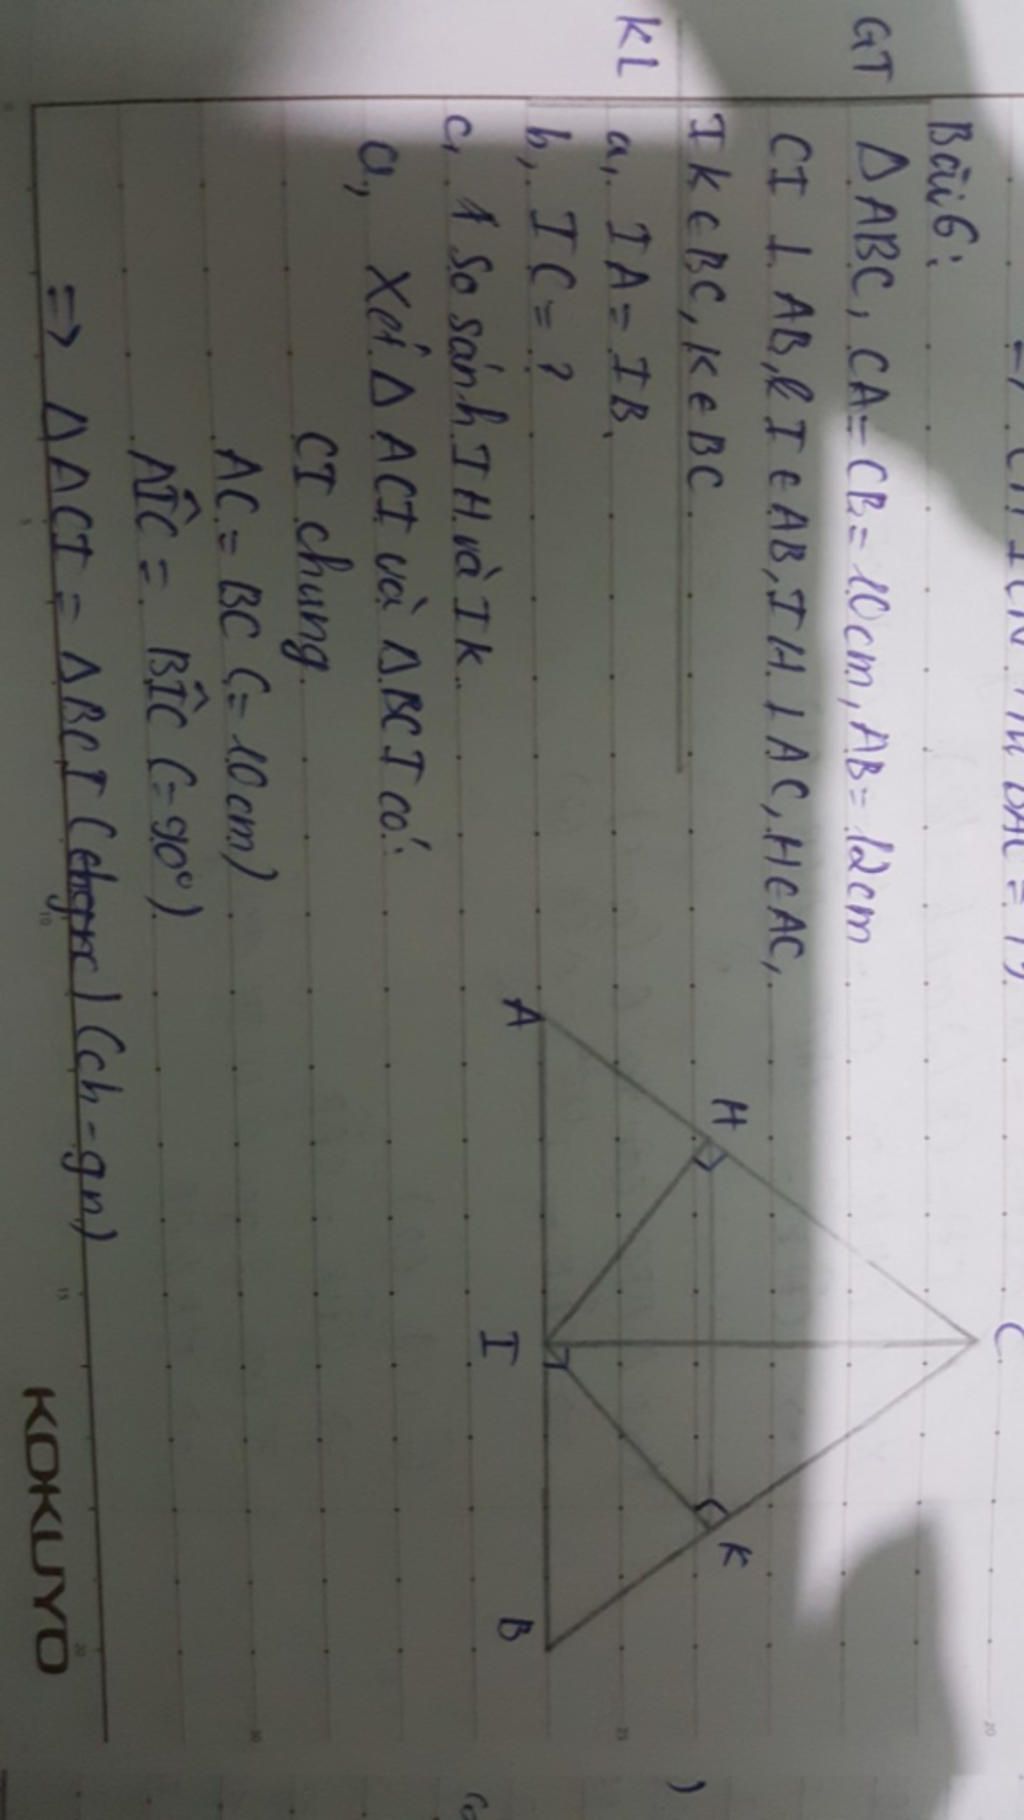 Bài 6:
GT ΔABC, CA = CB = 10cm, AB = 12cm
CI ⊥ AB, I ∈ AB, IH ⊥ AC, H ∈ AC,
IK ⊂ BC, K ∈ BC
KL a, IA = IB
b, IC = ?
c, So sánh IH và IK
a, Xét Δ ACI và ΔBCI có:
CI chung
AC = BC (= 10cm)
AIC = BIC (= 90°)
=> ΔACI = ΔBCI (ch-gn)
C
H
K
A
I
B
KOKUYO